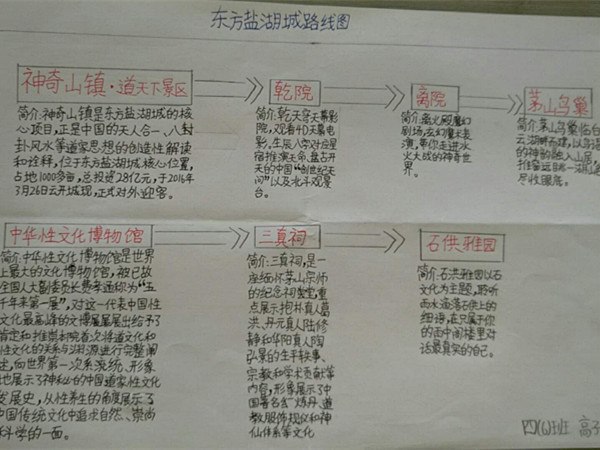 东方盐湖城路线图
神奇山镇·道天下景区
乾院
离院
茅山鸟巢
简介:神奇山镇是东方盐湖城的核
心项目,正是中国的天人合一、八封
卦风水等道家思想的创造性解读
和诠释,位于东方盐湖城核心位置,
占地1000多亩,总投资28亿元,于2016年
3月26日云开城现,正式对外迎客。
简介:乾天穹天幕影
院,观看4D天幕电
影,生辰八字对应星
宿推演天命、盘古开
天的中国“创世纪天
问”以及北斗观景
台。
简介:离火殿魔幻
剧场,玄幻魔术表
演,带你走进水
火大战的神奇世
界。
简介茅山鸟巢临台
尽收眼底。
中华性文化博物馆
三真祠
石供雅园
简介:中华性文化博物馆是世界
上最大的文化博物馆,被已故
全国人大副委员长费孝通称为“五
千年来第一展”,对这一代表中国性
文化最高峰的文博展展出给予了
肯定和推崇
首次将道文化和
性文化的关系与渊源进行完整阐
述,向世界第一次系统、形象
地展示了神秘的中国道家性文化
发展史,从性养生的角度展示了
中国传统文化中追求自然、崇尚
科学的一面。
简介:三真祠,是一
座缅怀茅山宗师
的纪念祠堂,重
点展示抱朴真人葛
洪、丹元真人陆修
静和华阳真人陶
弘景的生平轶事、
宗教和学术贡献等
内容,形象展示了中
国著名的炼丹、道
教服饰规仪和神
仙体系等文化
简介:石洪雅园以石
文化为主题,聆听
雨水滴落石供上的
细语,在只属于你
的雨中阁楼里对
话最真实的自己。
四(6)班 高子